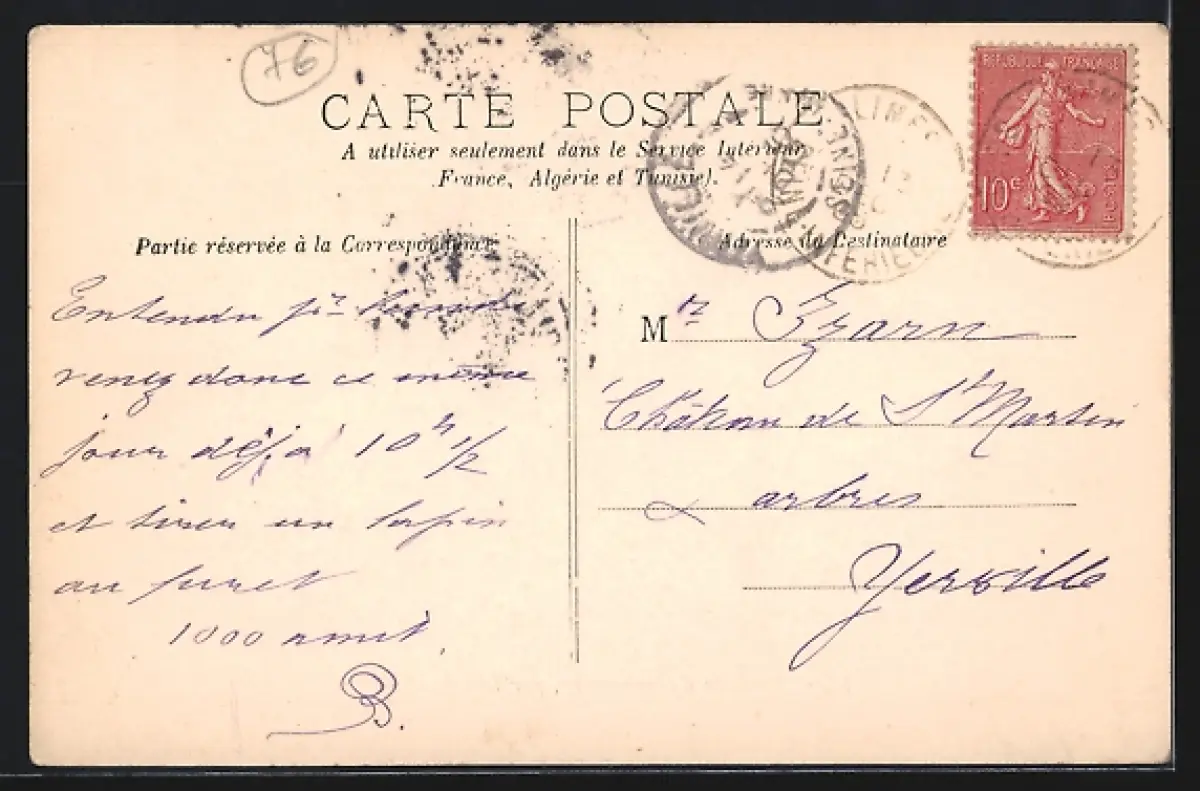 76
CARTE POSTALE
A utiliser seulement dans le Service Intérieur
France, Algérie et Tunisie).
Partie réservée à la Correspondance
Adresse du Destinataire
REPUBLIQUE FRANÇAISE
10c
POSTES
Entendu pr
venez donc ce même
jour déjà 10h 1/2
et tirer un lapin
au furet
1000 amit.
B.
Mr Izarn
Château de St Martin
arbres
Yerville